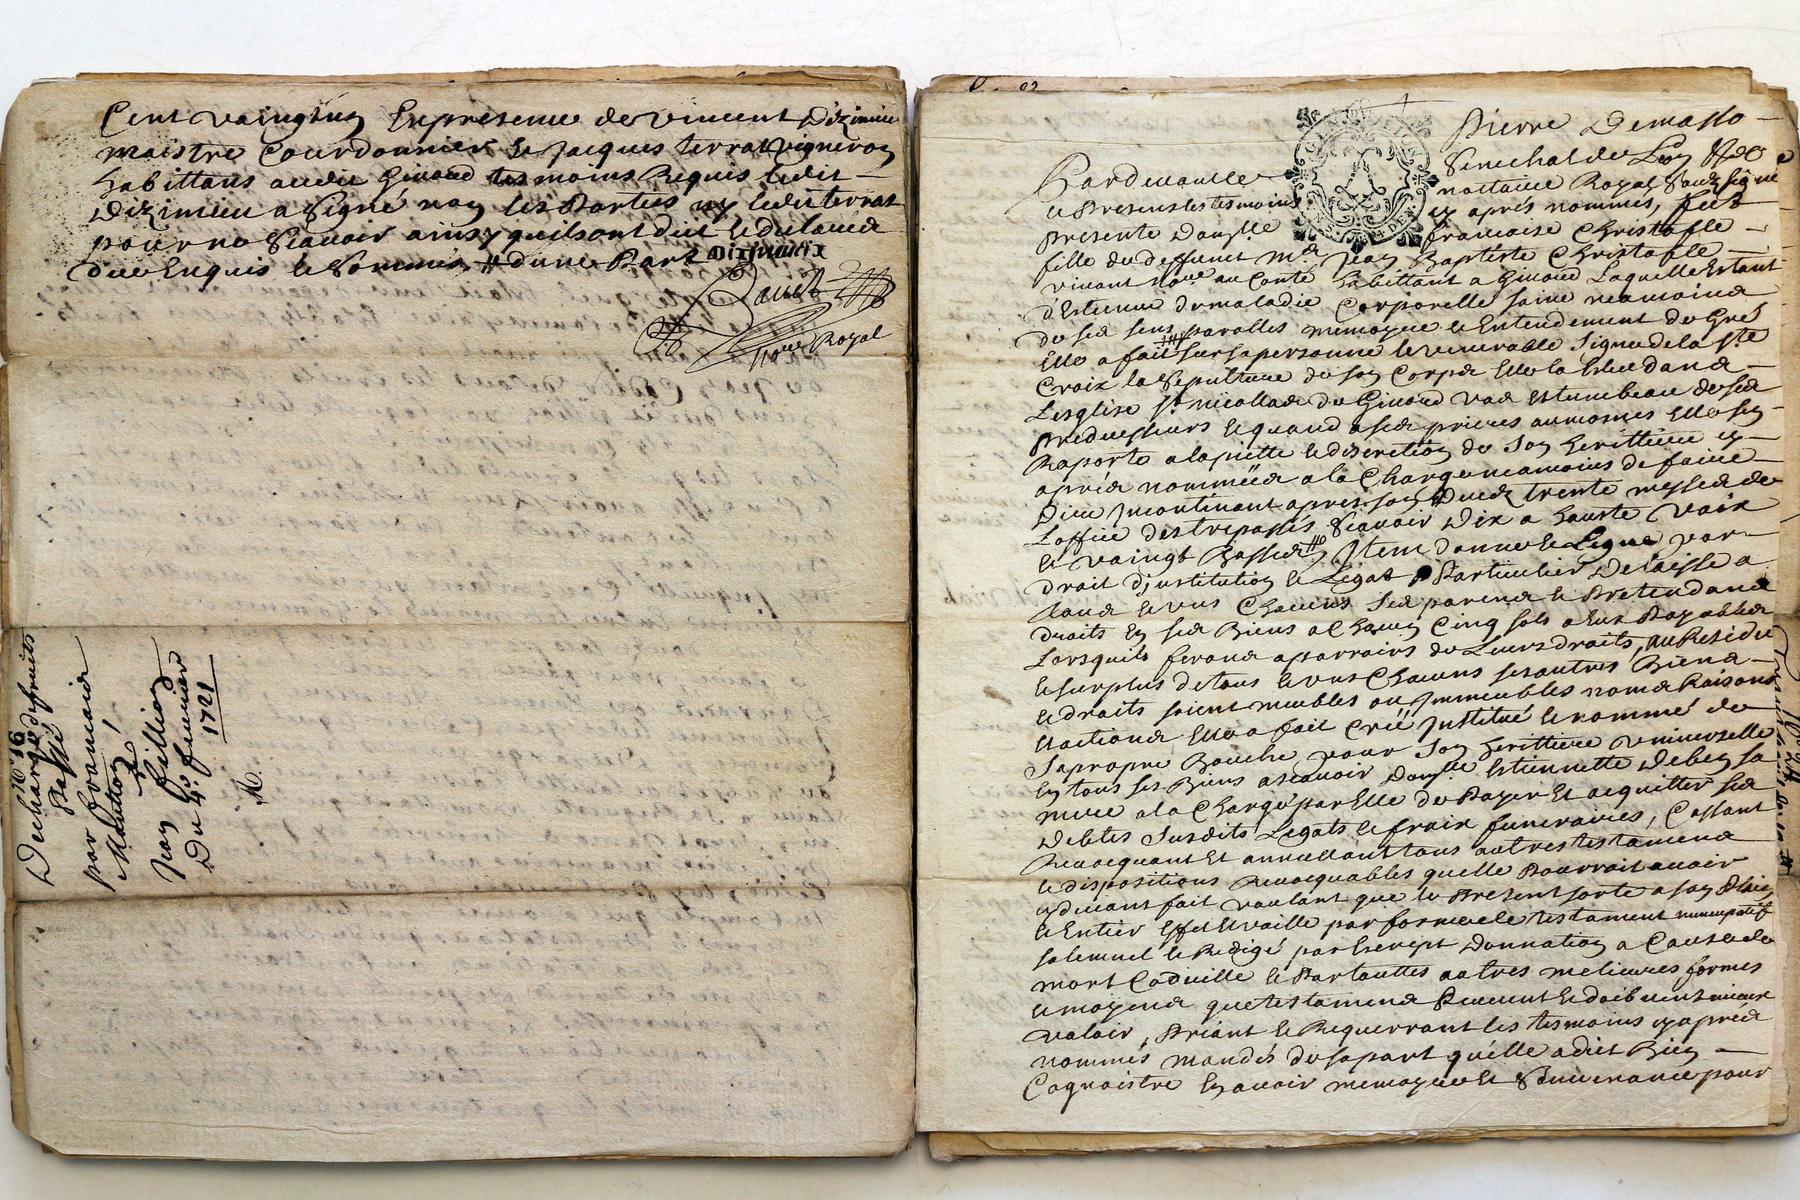 Cent vaingtun En presence de vincent Diziminieu
maistre Courdonnier Et Jacques terrat vigneron
habittans audit Givord tesmoins Requis ledit
Diziminieu a Signe non les Parties ny ledit terrat
pour ne Scavoir ainsy quils ont dit Et declairé
deue Enquis Et Sommés # dune Part
Royal
No. 16
Descharge de fruits
Passé
par francoise
Moutton
a
Jean fillion
Du 4e feuvrier
1721
Pierre Demasso
Senechal de Lyon
Pardevant le nottaire Royal Soubsigné
et Presens les tesmoins cy aprés nommés, feut
presente Dauzlle francoise Christofle
fille du deffunt Mre Jean Baptiste Christofle
vivant au Conté habittant a Givord Laquelle Estant
d'Estenue de maladie Corporelle saine neamoins
de ses sens parolles memoyre et Entendement de Gré
Elle a fait sur sa personne le venerable Signe de la Ste
Croix la Sepulture de son Corps Elle la Eslue dans
Lesglise St nicollas de Givord vas et tumbeau de ses
predecesseurs Et quand a ses prieres aumosnes Elle sen
Raporte a la piette et discretion de son herittiere cy
aprés nommëés a la Charge neamoins de faire
Dire Incontinant apres son Deces trente messes de
Loffice des trepassés Scavoir Dix a haute voix
et vaingt Basses Item donne et Legue par
droit d'institution et Legat Particulier Delaisse a
tous et uns Chacuns ses parens et Pretendans
droits En ses Biens a Chacun Cinq sols a Eux Payables
Lorsquils feront apparroirs de Leurs droits, au Residu
et surplus de tous et uns Chacuns ses autres Biens
et droits soient meubles ou Immeubles noms Raisons
et actions Elle a fait Créé Institué et nommé de
sa propre Bouche pour son herittiere universelle
En tous ses Biens a scavoir Dauzlle Estiennette Debessa
mere a la Charge par Elle de Payer Et acquitter ses
Debtes Susdits Legats et fraix funeraires, Cassant
Revocquant Et annullant tous autres testamens
et dispositions Revocquables quelle Pourroit avoir
cy devant fait voulant que le Present sorte a son Plein
et Entier Effet Et vaille par forme de testament nuncupatif
solemnel et Redigé par Escript Donnation a Cause de
mort Codicille et Par touttes autres melieures formes
et moyens que testamens Peuvent Et doibvent mieux
valoir, Priant et Requerrant les tesmoins cy aprés
nommés mandés de sa part qu'elle a dit Bien
Cognoistre En avoir memoyre Et Souvenance pour